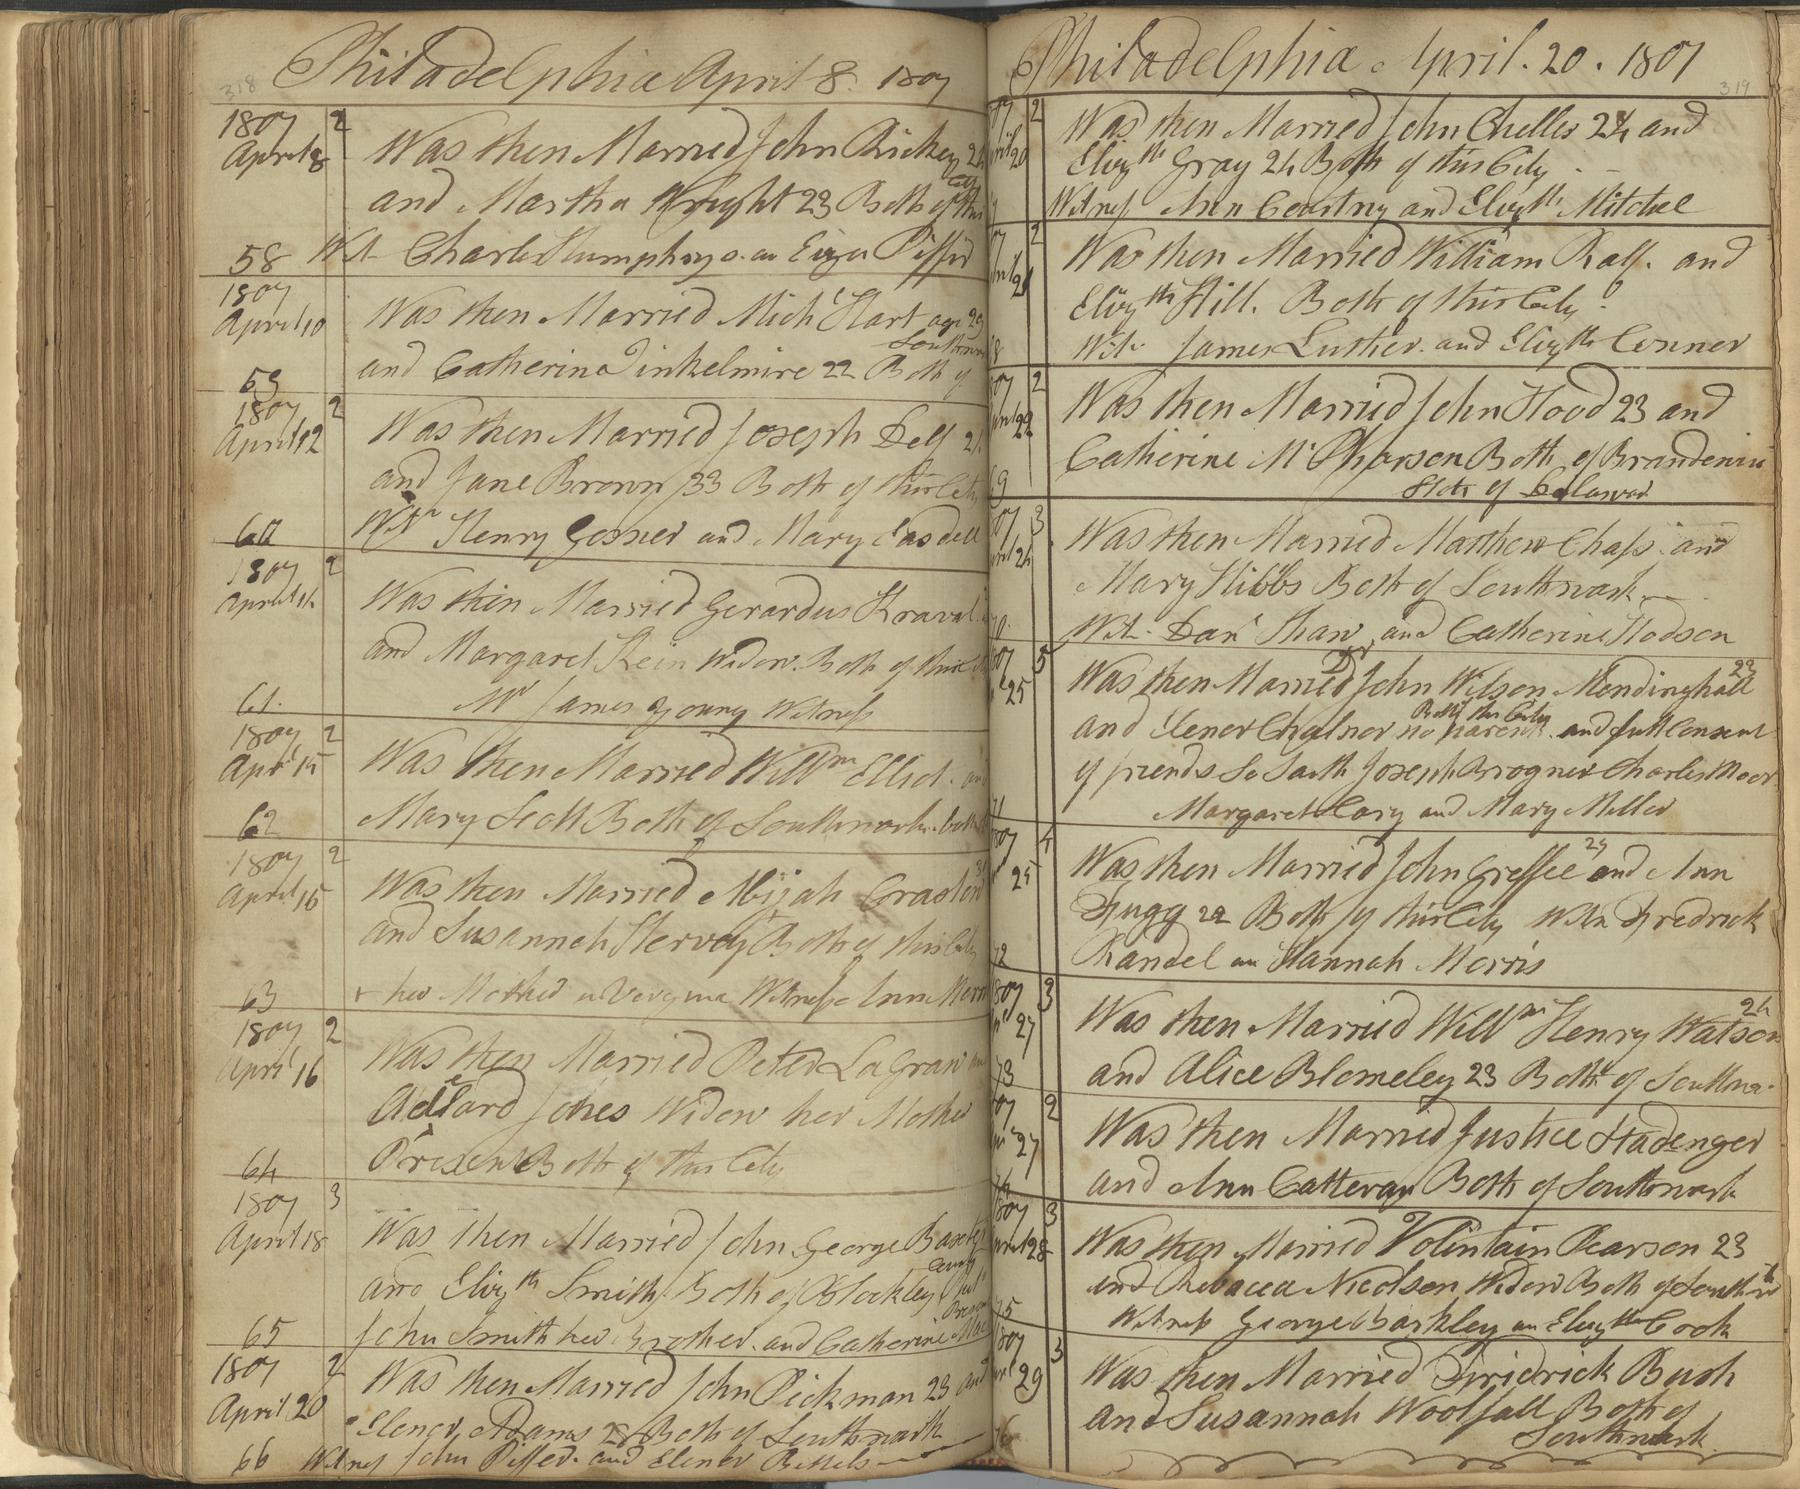 318
Philadelphia April 8. 1807
1807 2
April 8 Was then Married John Rickey 24
and Martha Wright 23 Both of this
City
58 Wit Charles Humphrys. an Eliza Piffer
1807
April 10 Was then Married Michl Hart age 23
and Catherina Dinkelmire 22 Both of
Southwark
59
1807 2
April 12 Was then Married Joseph Delf 21
and Jane Brown 33 Both of this City
60 Witn Henry Gosner and Mary Casdell
1807 2
April 14 Was then Married Gerardus Kraval
and Margaret Stein Widow. Both of this City
61. Mr James Young Witness
1807 2
Aprl 15 Was then Married Willm Elliot. and
62 Mary Scott Both of Southwark.
1807 2
April 15 Was then Married Abijah Craston
and Susannah Hervey Both of this City
63 + her Mother Witness Ann
1807 2
April 16 Was then Married Peter LaGraw an
Adelard Jones Widow her Mother
Present Both of this City
64
1807 3
April 18 Was then Married John George
and Elizth Smith Both of Blockley
65 John Smith her Brother. and Catherine
1807 2
April 20 Was then Married John Pickman 23 and
Elenor Adams 28 Both of Southwark
66 Witness John Piffer. and Elenor Bettels
319
Philadelphia. April. 20. 1807
07 2
ril 20 Was then Married John Cheller 24 and
Elizth Gray 24 Both of this City
Witness Ann Courtney and Elizth Mitchel
07 2
ril 21 Was then Married William Ralf. and
Elizth Hill. Both of this City
68 Witn James Luther. and Elizth Conner
07 2
ril 22 Was then Married John Hood 23 and
Catherine McPharson Both of Brandewin
69 State of Delawar
07 3
ril 24 Was then Married Matthew Chass. and
Mary Hibbs Both of Southwark
70. Wit. Danl Shaw and Catherine Hodson
07 5
25 Was then Married John Wilson Mendinghall 23
Both this City
and Elener Chalnor no parents. and full Consent
of friends So Saith Joseph Brogner Charles Moor
71 Margaret Cary and Mary Miller
1807 4
25 Was then Married John Creffee 29 and Ann
Fugg 22 Both of this City Witn Fredrick
72 Randel an Hannah Morris
1807 3
27 Was then Married Willm Henry Watson 24
73 and Alice Blomeley 23 Both of Southwa.
07 2
27 Was then Married Justice Hadenger
74 and Ann Catteran Both of Southwark
1807 3
ril 28 Was then Married Volintain Pearson 23
and Rebacca Nicolson Widow Both of Southwrk
75 Witness George Barkley an Elizth Cook
1807 3
ril 29 Was then Married Fridrick Bush
and Susannah Woolfall Both of
76 Southwark